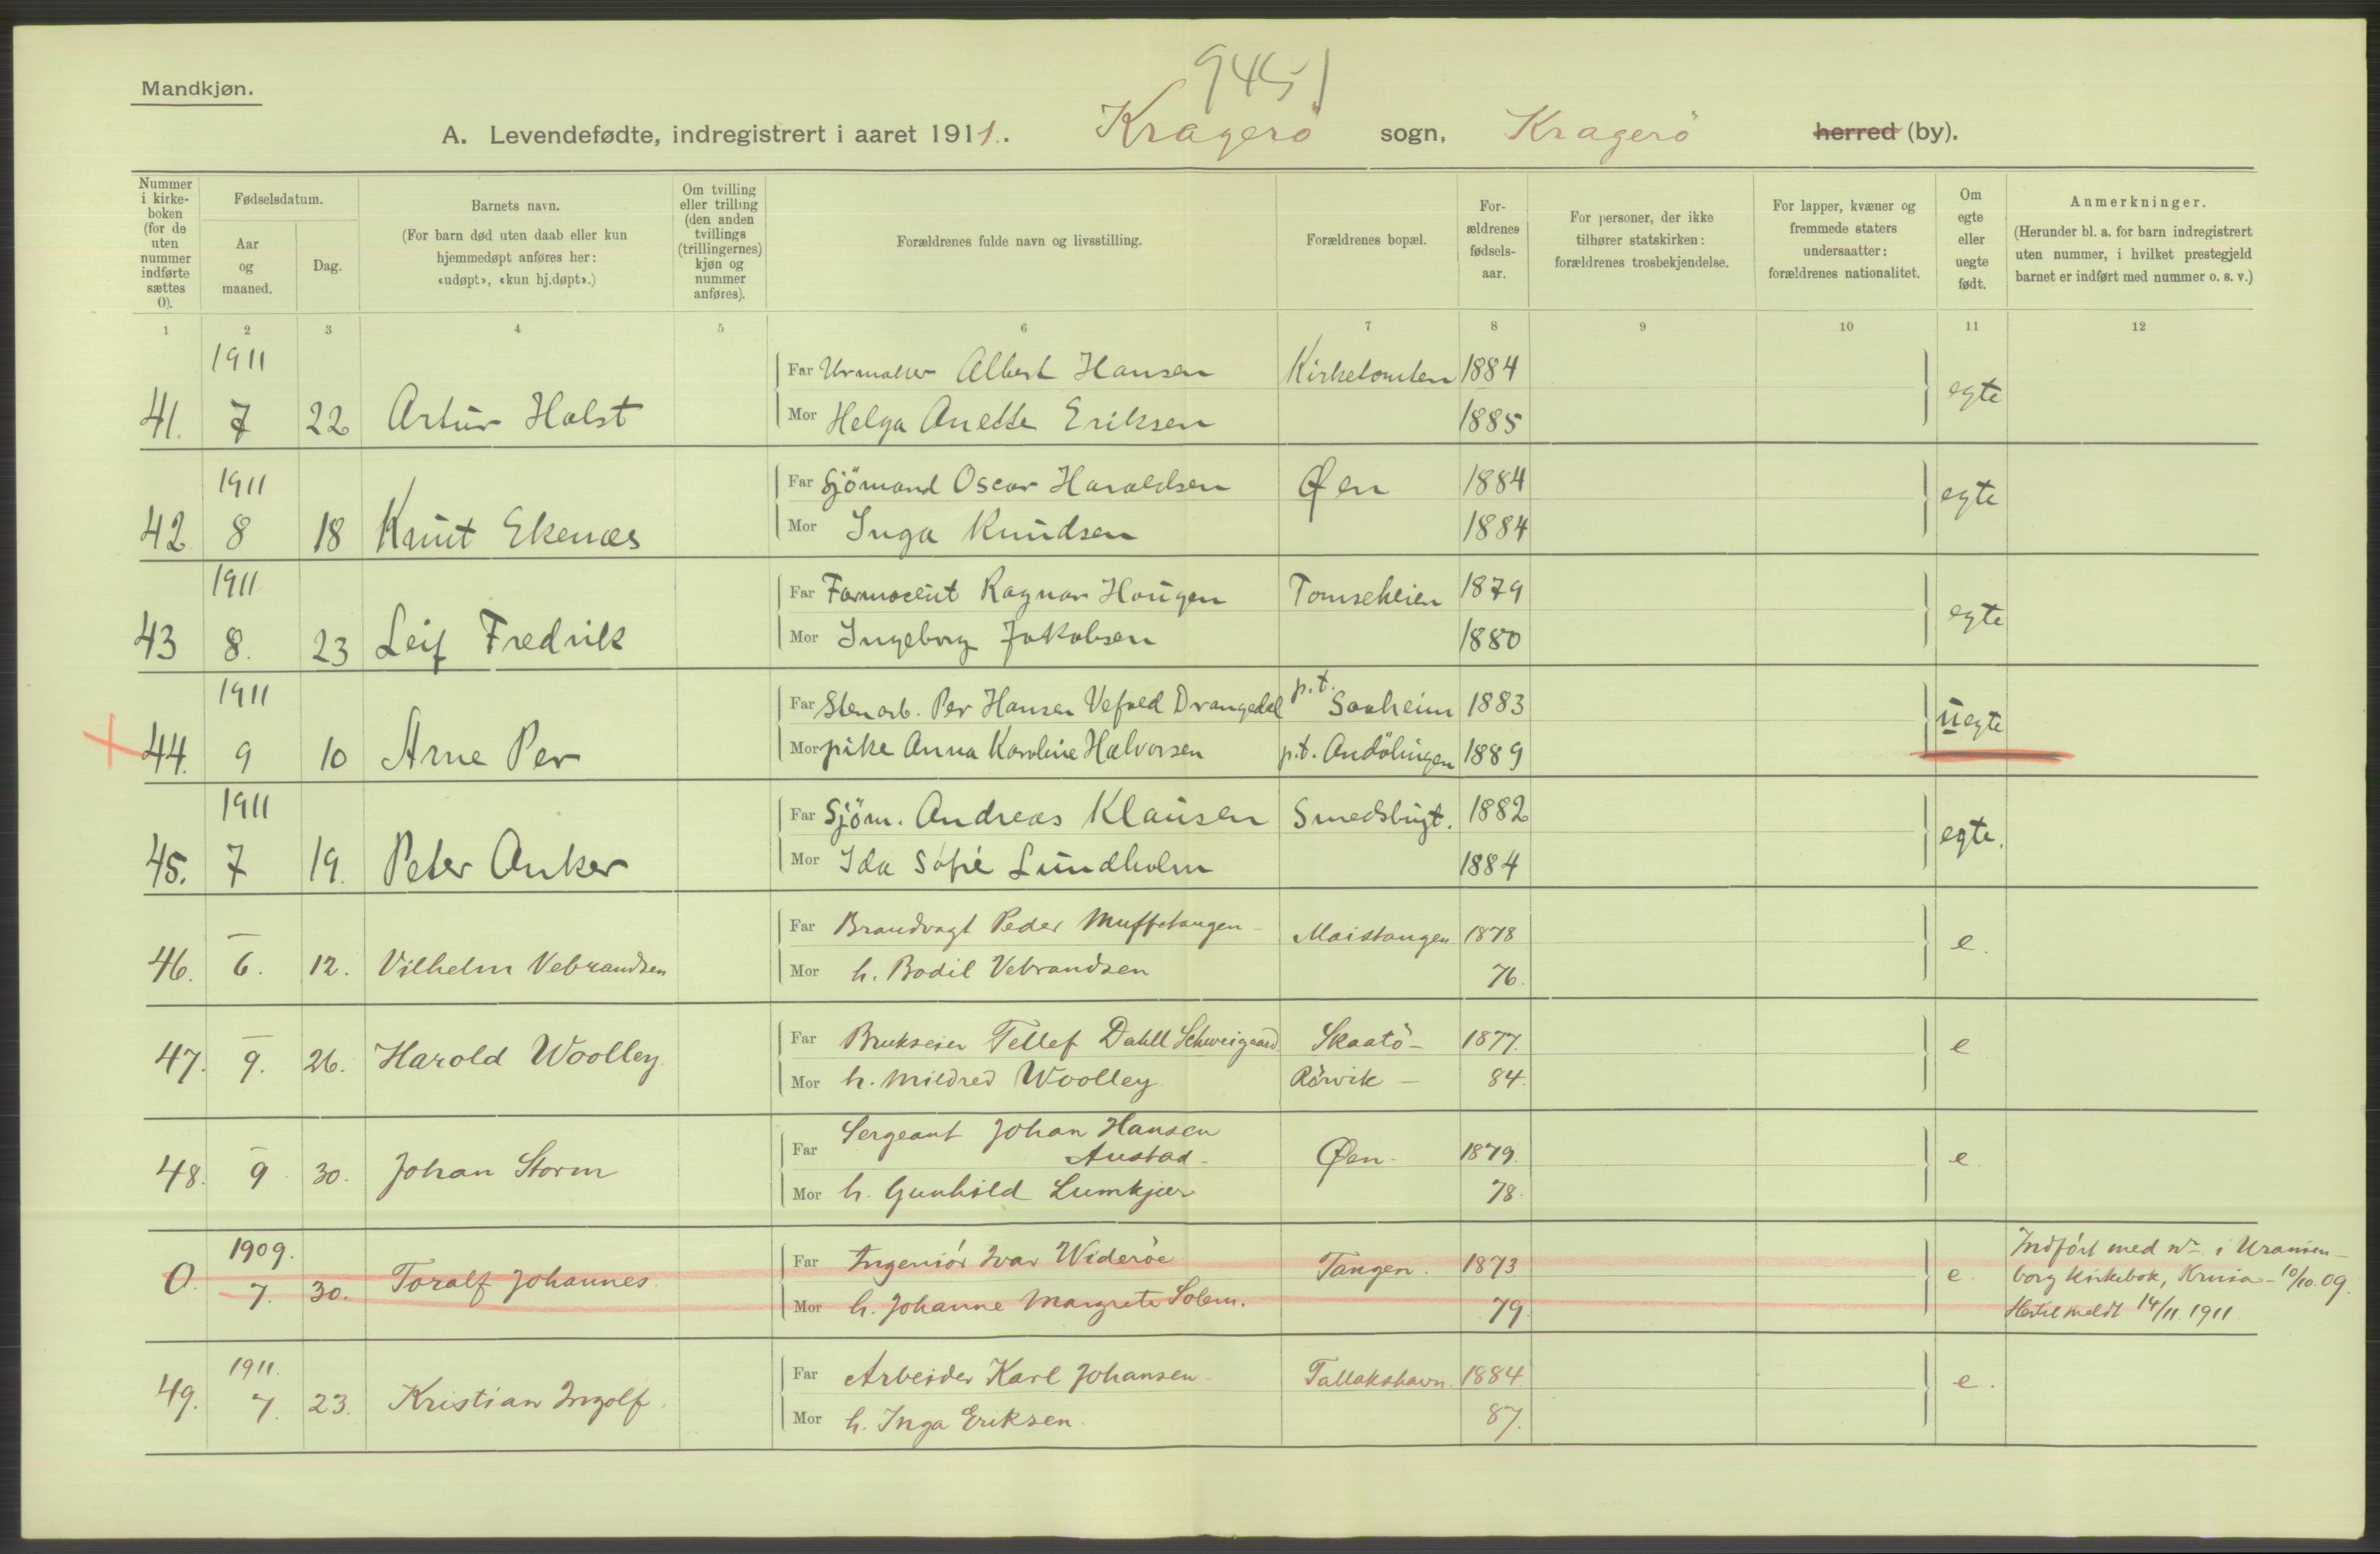 9451
Mandkjøn.
A. Levendefødte, indregistrert i aaret 1911. Kragerö sogn, Kragerö herred (by).
Nummer i kirkeboken (for de uten nummer indførte sættes 0).
Fødselsdatum.
Aar og maaned.
Dag.
Barnets navn.
(For barn død uten daab eller kun hjemmedøpt anføres her: «udøpt», «kun hj.døpt».)
Om tvilling eller trilling (den anden tvillings (trillingernes) kjøn og nummer anføres).
Forældrenes fulde navn og livsstilling.
Forældrenes bopæl.
Forældrenes fødselsaar.
For personer, der ikke tilhører statskirken: forældrenes trosbekjendelse.
For lapper, kvæner og fremmede staters undersaatter: forældrenes nationalitet.
Om egte eller uegte født.
Anmerkninger.
(Herunder bl. a. for barn indregistrert uten nummer, i hvilket prestegjeld barnet er indført med nummer o. s. v.)
1 2 3 4 5 6 7 8 9 10 11 12
1911 Far Urmaker Albert Hansen Kirketomten 1884
41. 7 22 Artur Holst Mor Helga Anette Eriksen 1885 egte
1911 Far Sjömand Oscar Haraldsen Øen 1884
42 8 18 Knut Ekenæs Mor Inga Knudsen 1884 egte
1911 Far Farmaceut Ragnar Haugen Tomseheien 1879
43 8. 23 Leif Fredrik Mor Ingeborg Jakobsen 1880 egte
1911 Far Stenarb. Per Hansen Vefald Drangedal p.t. Saaheim 1883
44. 9 10 Arne Per Mor pike Anna Karoline Halvorsen p.t. Andölingen 1889 uegte
1911 Far Sjöm. Andreas Klausen Smedsbugt. 1882
45. 7 19. Peter Anker Mor Ida Sofie Lundholm 1884 egte.
— Far Brandvagt Peder Muffetangen - Maistangen 1878
46. 6. 12. Vilhelm Vebrandsen Mor h. Bodil Vebrandsen 76. e.
— Far Brukseier Tellef Dahll Schweigaard Skaatö - 1877.
47. 9. 26. Harold Woolley. Mor h. Mildred Woolley. Rörvik - 84. e
— Far Sergeant Johan Hansen
Austad - Øen - 1879.
48. 9 30. Johan Storm Mor h. Gunhild Lumkjær 78. e.
1909. Far Ingeniör Ivar Wideröe Tangen. 1873
0. 7. 30. Toralf Johannes. Mor h. Johanne Margrete Solem. 79. e.
Indfört med nr i Uranien-
borg kirkebok, Krnia - 10/10.09.
Hertil meldt 14/11 1911
1911. Far Arbeider Karl Johansen - Tallakshavn. 1884
49. 7. 23. Kristian Ingolf. Mor h. Inga Eriksen. 87. e.